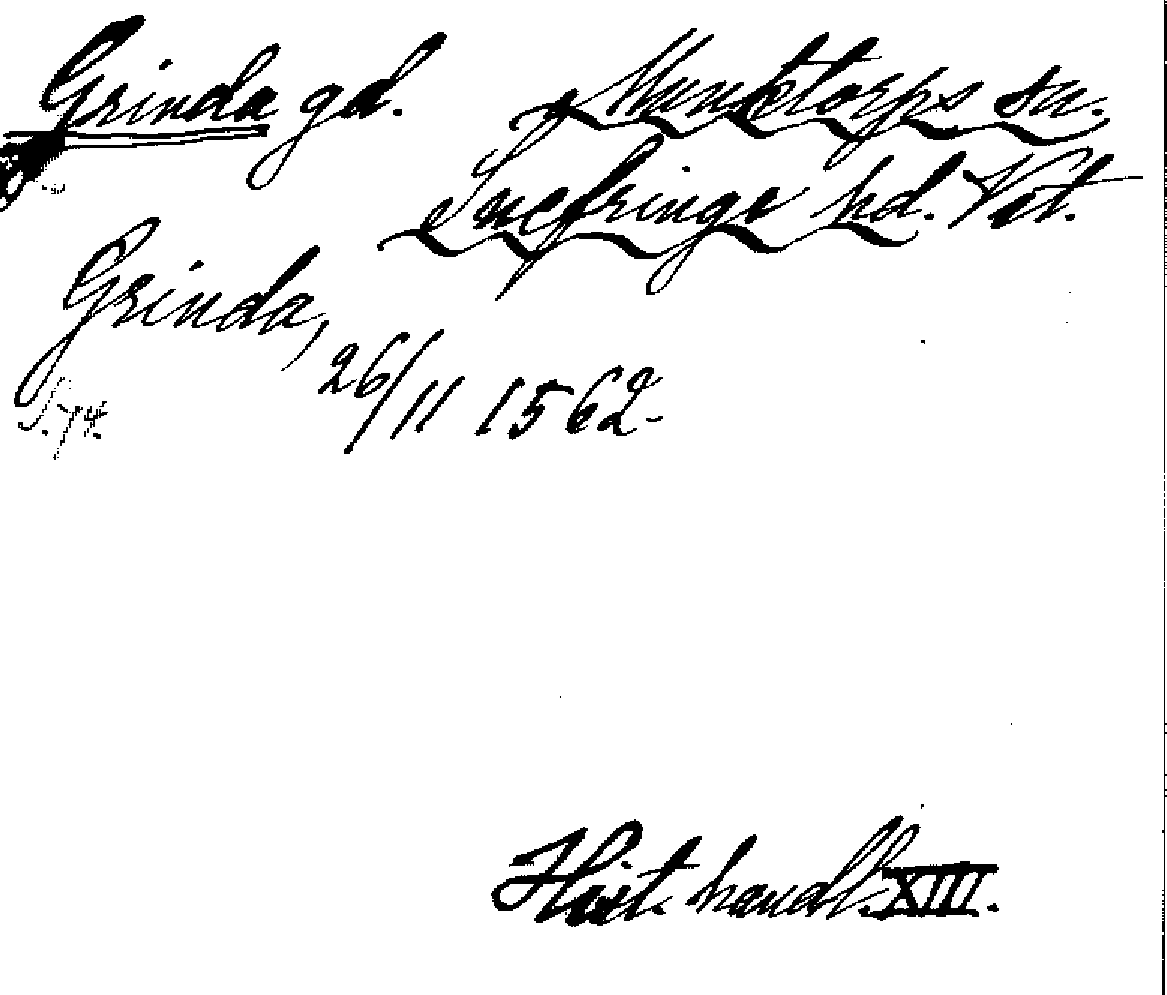 Grinda gd. Munktorps sn.
Snefringe hd. Vst.
Grinda,
26/11 1562.
S. 74.
Hist. handl. XIII.